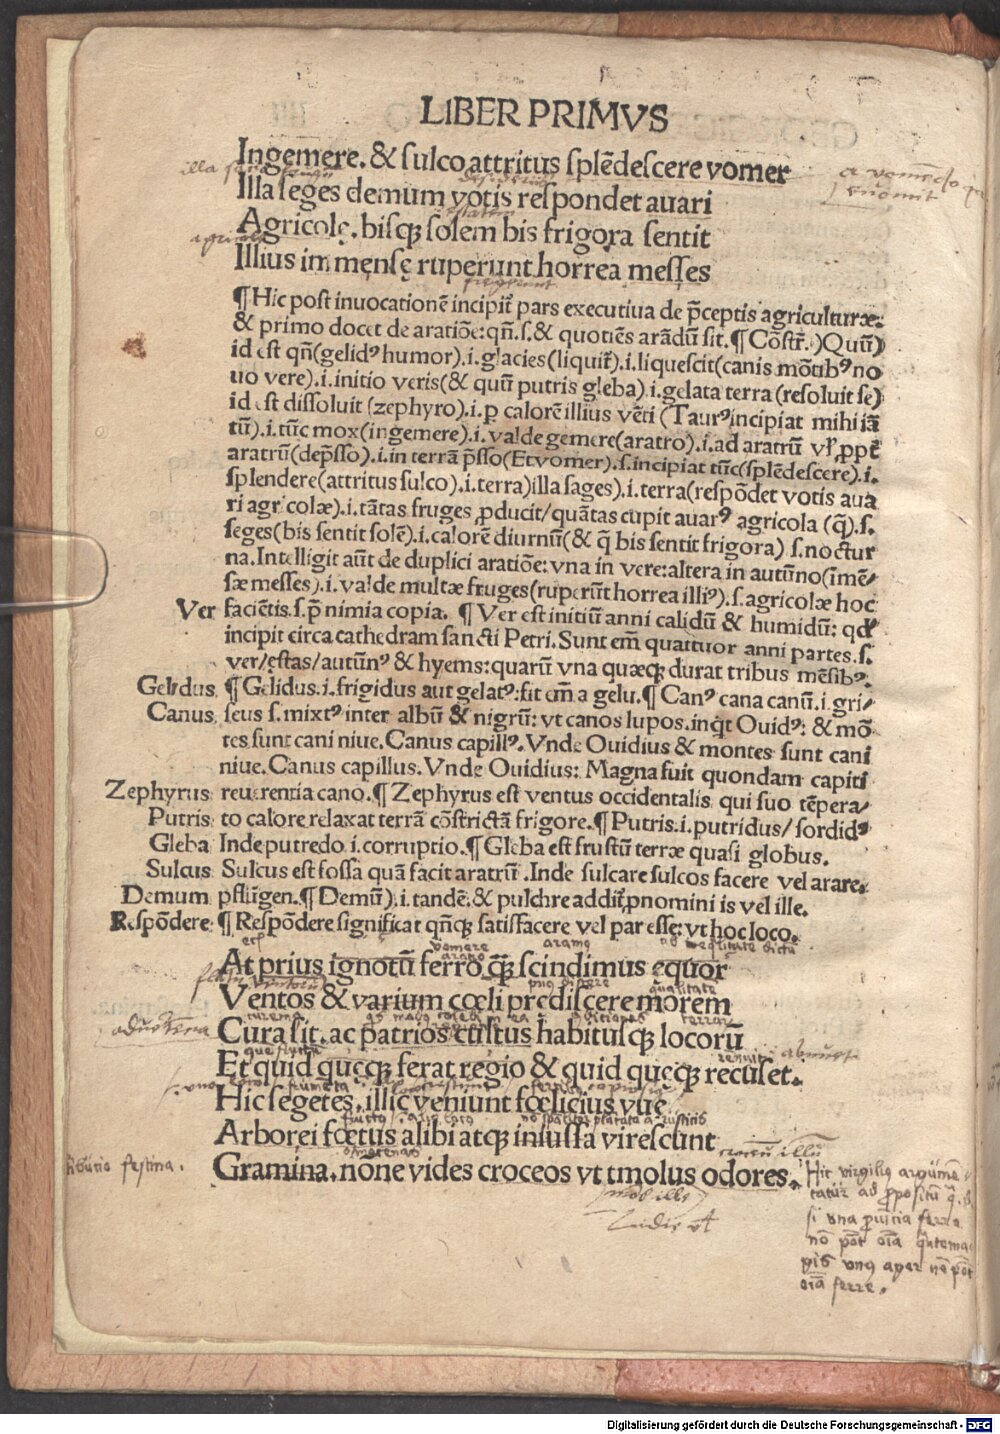 LIBER PRIMVS
Ingemere. & sulco attritus splēdescere vomer
Illa seges demum votis respondet auari
Agricolę. bisqꝫ solem bis frigora sentit
Illius immensę ruperunt horrea messes
¶ Hic post inuocationē incipit pars executiua de p̄ceptis agriculturæ:
& primo docet de aratiōe: qn̄.s. & quotiēs arādū sit. ¶ Cōstr̄.) Quū)
id est qn̄(gelidꝰ humor).i.glacies(liquit̄).i.liquescit(canis mōtibꝰ no
uo vere).i.initio veris(& quū putris gleba).i.gelata terra (resoluit se)
id est dissoluit (zephyro).i.p calorē illius vēti (Taurꝰ incipiat mihi iā
tū).i.tūc mox(ingemere).i.valde gemere(aratro).i.ad aratrū vl' ꝓpt̄
aratrū(dep̄sso).i.in terrā p̄sso(Et vomer).s.incipiat tūc(splēdescere).i.
splendere(attritus sulco).i.terra)illa sages).i.terra(respōdet votis aua
ri agricolæ).i.tātas fruges ꝓducit/quātas cupit auarꝰ agricola (q̄).s.
seges(bis sentit solē).i.calorē diurnū(& q̄ bis sentit frigora) s.noctur
na. Intelligit aūt de duplici aratiōe: vna in vere: altera in autūno(īmē/
sæ messes).i.valde multæ fruges(ruperūt horrea illiꝰ).s.agricolæ hoc
Ver faciētis.s.p̄ nimia copia. ¶ Ver est initiū anni calidū & humidū: qd'
incipit circa cathedram sancti Petri. Sunt em̄ quattuor anni partes.s.
ver/ęstas/autūnꝰ & hyems: quarū vna quæqꝫ durat tribus mēsibꝰ.
Gelidus ¶ Gelidus.i.frigidus aut gelatꝰ: fit em̄ a gelu. ¶ Canꝰ cana canū.i.gri/
Canus seus s.mixtꝰ inter albū & nigrū: vt canos lupos.inqt Ouidꝰ: & mō
tes sunt cani niue. Canus capillꝰ. Vnde Ouidius & montes sunt cani
niue. Canus capillus. Vnde Ouidius: Magna fuit quondam capiti
Zephyrus reuerentia cano. ¶ Zephyrus est ventus occidentalis qui suo tēpera/
Putris to calore relaxat terrā cōstrictā frigore. ¶ Putris.i.putridus/sordidꝰ
Gleba Inde putredo.i.corruptio. ¶ Gleba est frustū terræ quasi globus.
Sulcus Sulcus est fossa quā facit aratrū. Inde sulcare sulcos facere vel arare.
Demum pflūgen. ¶ Demū).i.tandē. & pulchre addit̄ pnomini is vel ille.
Respōdere ¶ Respōdere significat qn̄qꝫ satisfacere vel par esse: vt hoc loco.
At prius ignotū ferro qꝫ̄ scindimus equor
Ventos & varium cœli prediscere morem
Cura sit. ac patrios cultus habitusqꝫ locorū
Et quid quęqꝫ ferat regio & quid quęqꝫ recuset.
Hic segetes. illic veniunt fœlicius vuę
Arborei fœtus alibi atqꝫ iniussa virescunt
Gramina. none vides croceos vt tmolus odores.
Hic virgilius
si vna
vnꝰ ager
oīa ferre.
Digitalisierung gefördert durch die Deutsche Forschungsgemeinschaft - DFG